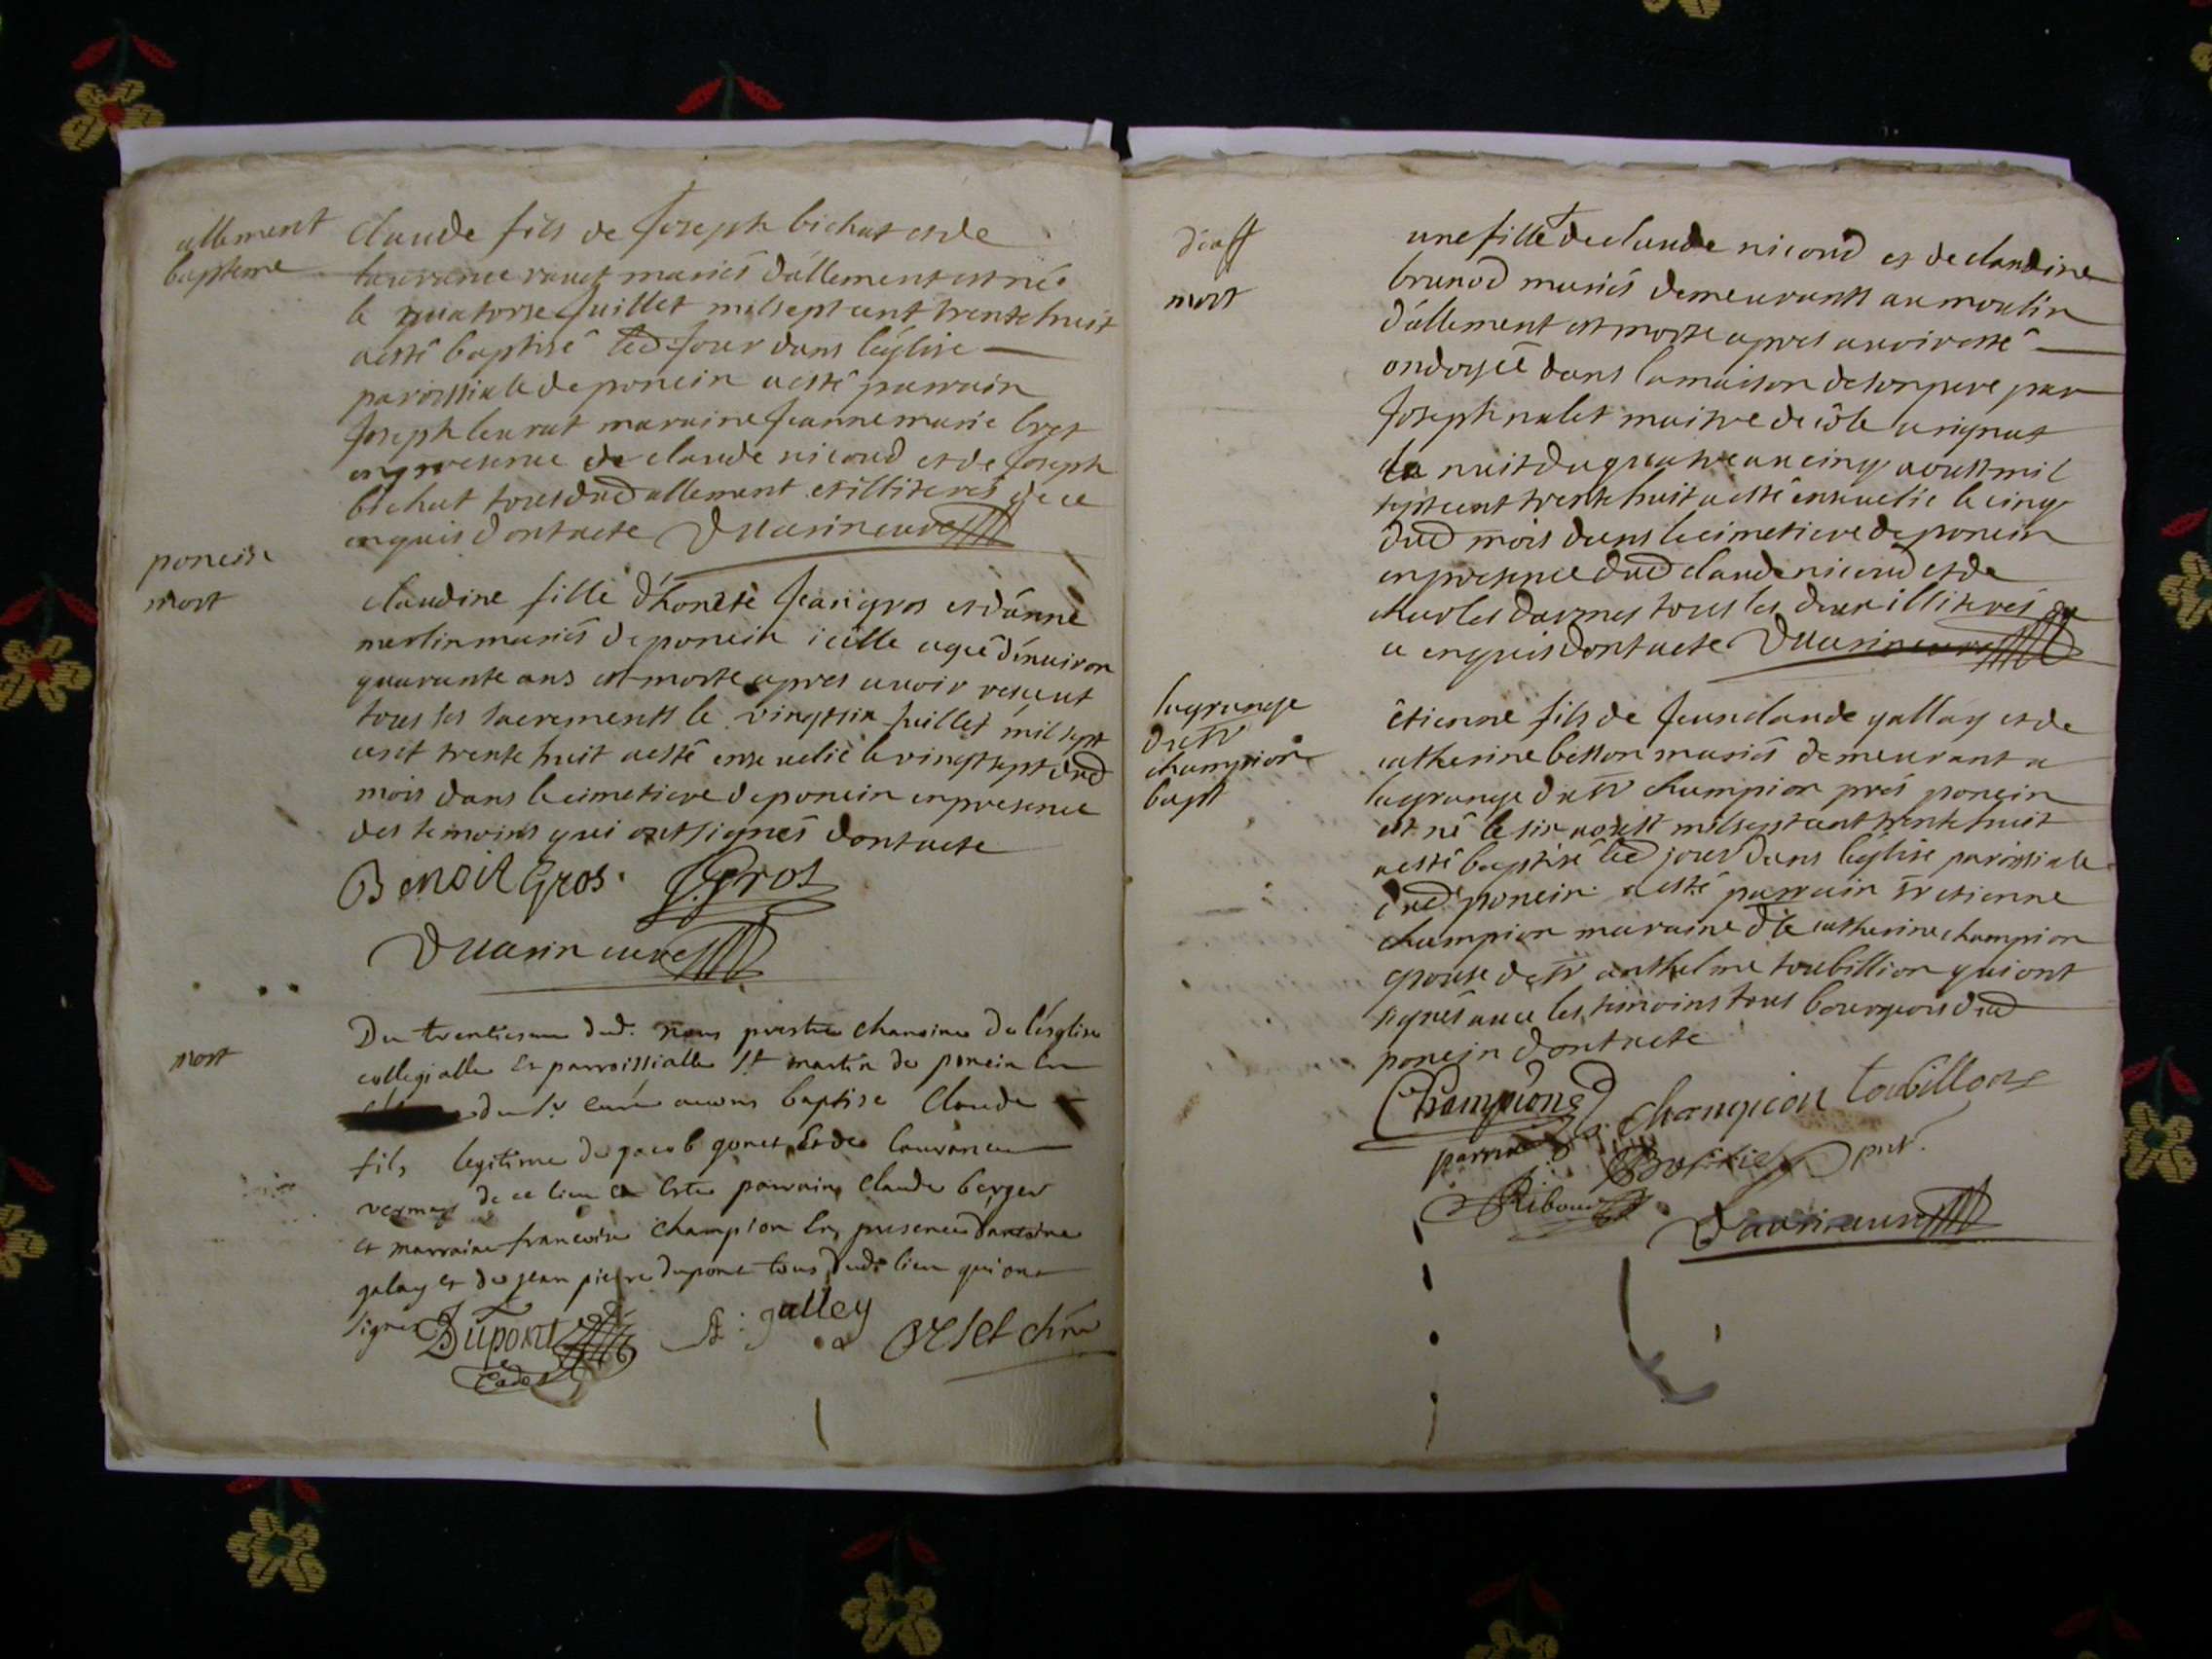 allement
bapteme
claude fils de Joseph bichat et de
laurance ravet mariés d'allement est né
le quatorse Juillet mil sept cent trente huit
a esté baptisé led. jour dans l'église
paroissiale de poncin a esté parrain
Joseph leurat maraine Jeanne marie bret
en presence de claude nicoud et de Joseph
bichat tous dud allement et illiterés de ce
enquis dont acte
poncin
mort
claudine fille d'honête Jean gros et d'anne
merlin mariés de poncin icelle agée d'environ
quarante ans est morte apres avoir reçeut
tous les sacrements le vingt six Juillet mil sept
cent trente huit a esté ensevelie le vingt sept dud
mois dans le cimetiere de poncin en presence
des temoins qui ont signés dont acte
Benoit Gros. J. Gros
mort
Du trentiesme dud. nous prestre chanoine de l'esglise
collegialle et parroissialle st martin de poncin en
du sr curé avons baptise Claude
fils legitime de jacob gonet et de laurance
de ce lieu a este parrain Claude berger
et marraine francoise champion en presence dantoine
galay et de jean pierre dupont tous dud. lieu qui ont
signes Dupont A: galley orset chne
mort
une fille de claude nicoud et de claudine
brunod mariés demeurants au moulin
d'allement est morte apres avoir esté
ondoyée dans la maison de son pere par
Joseph nalet maitre decôle
la nuit du quatre au cinq aoust mil
sept cent trente huit a esté ensevelie le cinq
dud mois dans le cimetiere de poncin
en presence dud claude nicoud et de
charles darmes tous les deux illiterés de
ce enquis dont acte
lagrange
du sr
champion
bapt
êtienne fils de Jean claude gallay et de
catherine besson mariés demeurant a
lagrange du sr champion prés poncin
est né le six aoust mil sept cent trente huit
a esté baptisé led jour dans l'eglise paroissiale
dud poncin a esté parrain sr etienne
champion maraine dlle catherine champion
epouse de sr anthelme toubillion qui ont
signés avec les temoins tous bourgeois dud
poncin dont acte
Champion
parrain C. Champion toubillon
Riboud